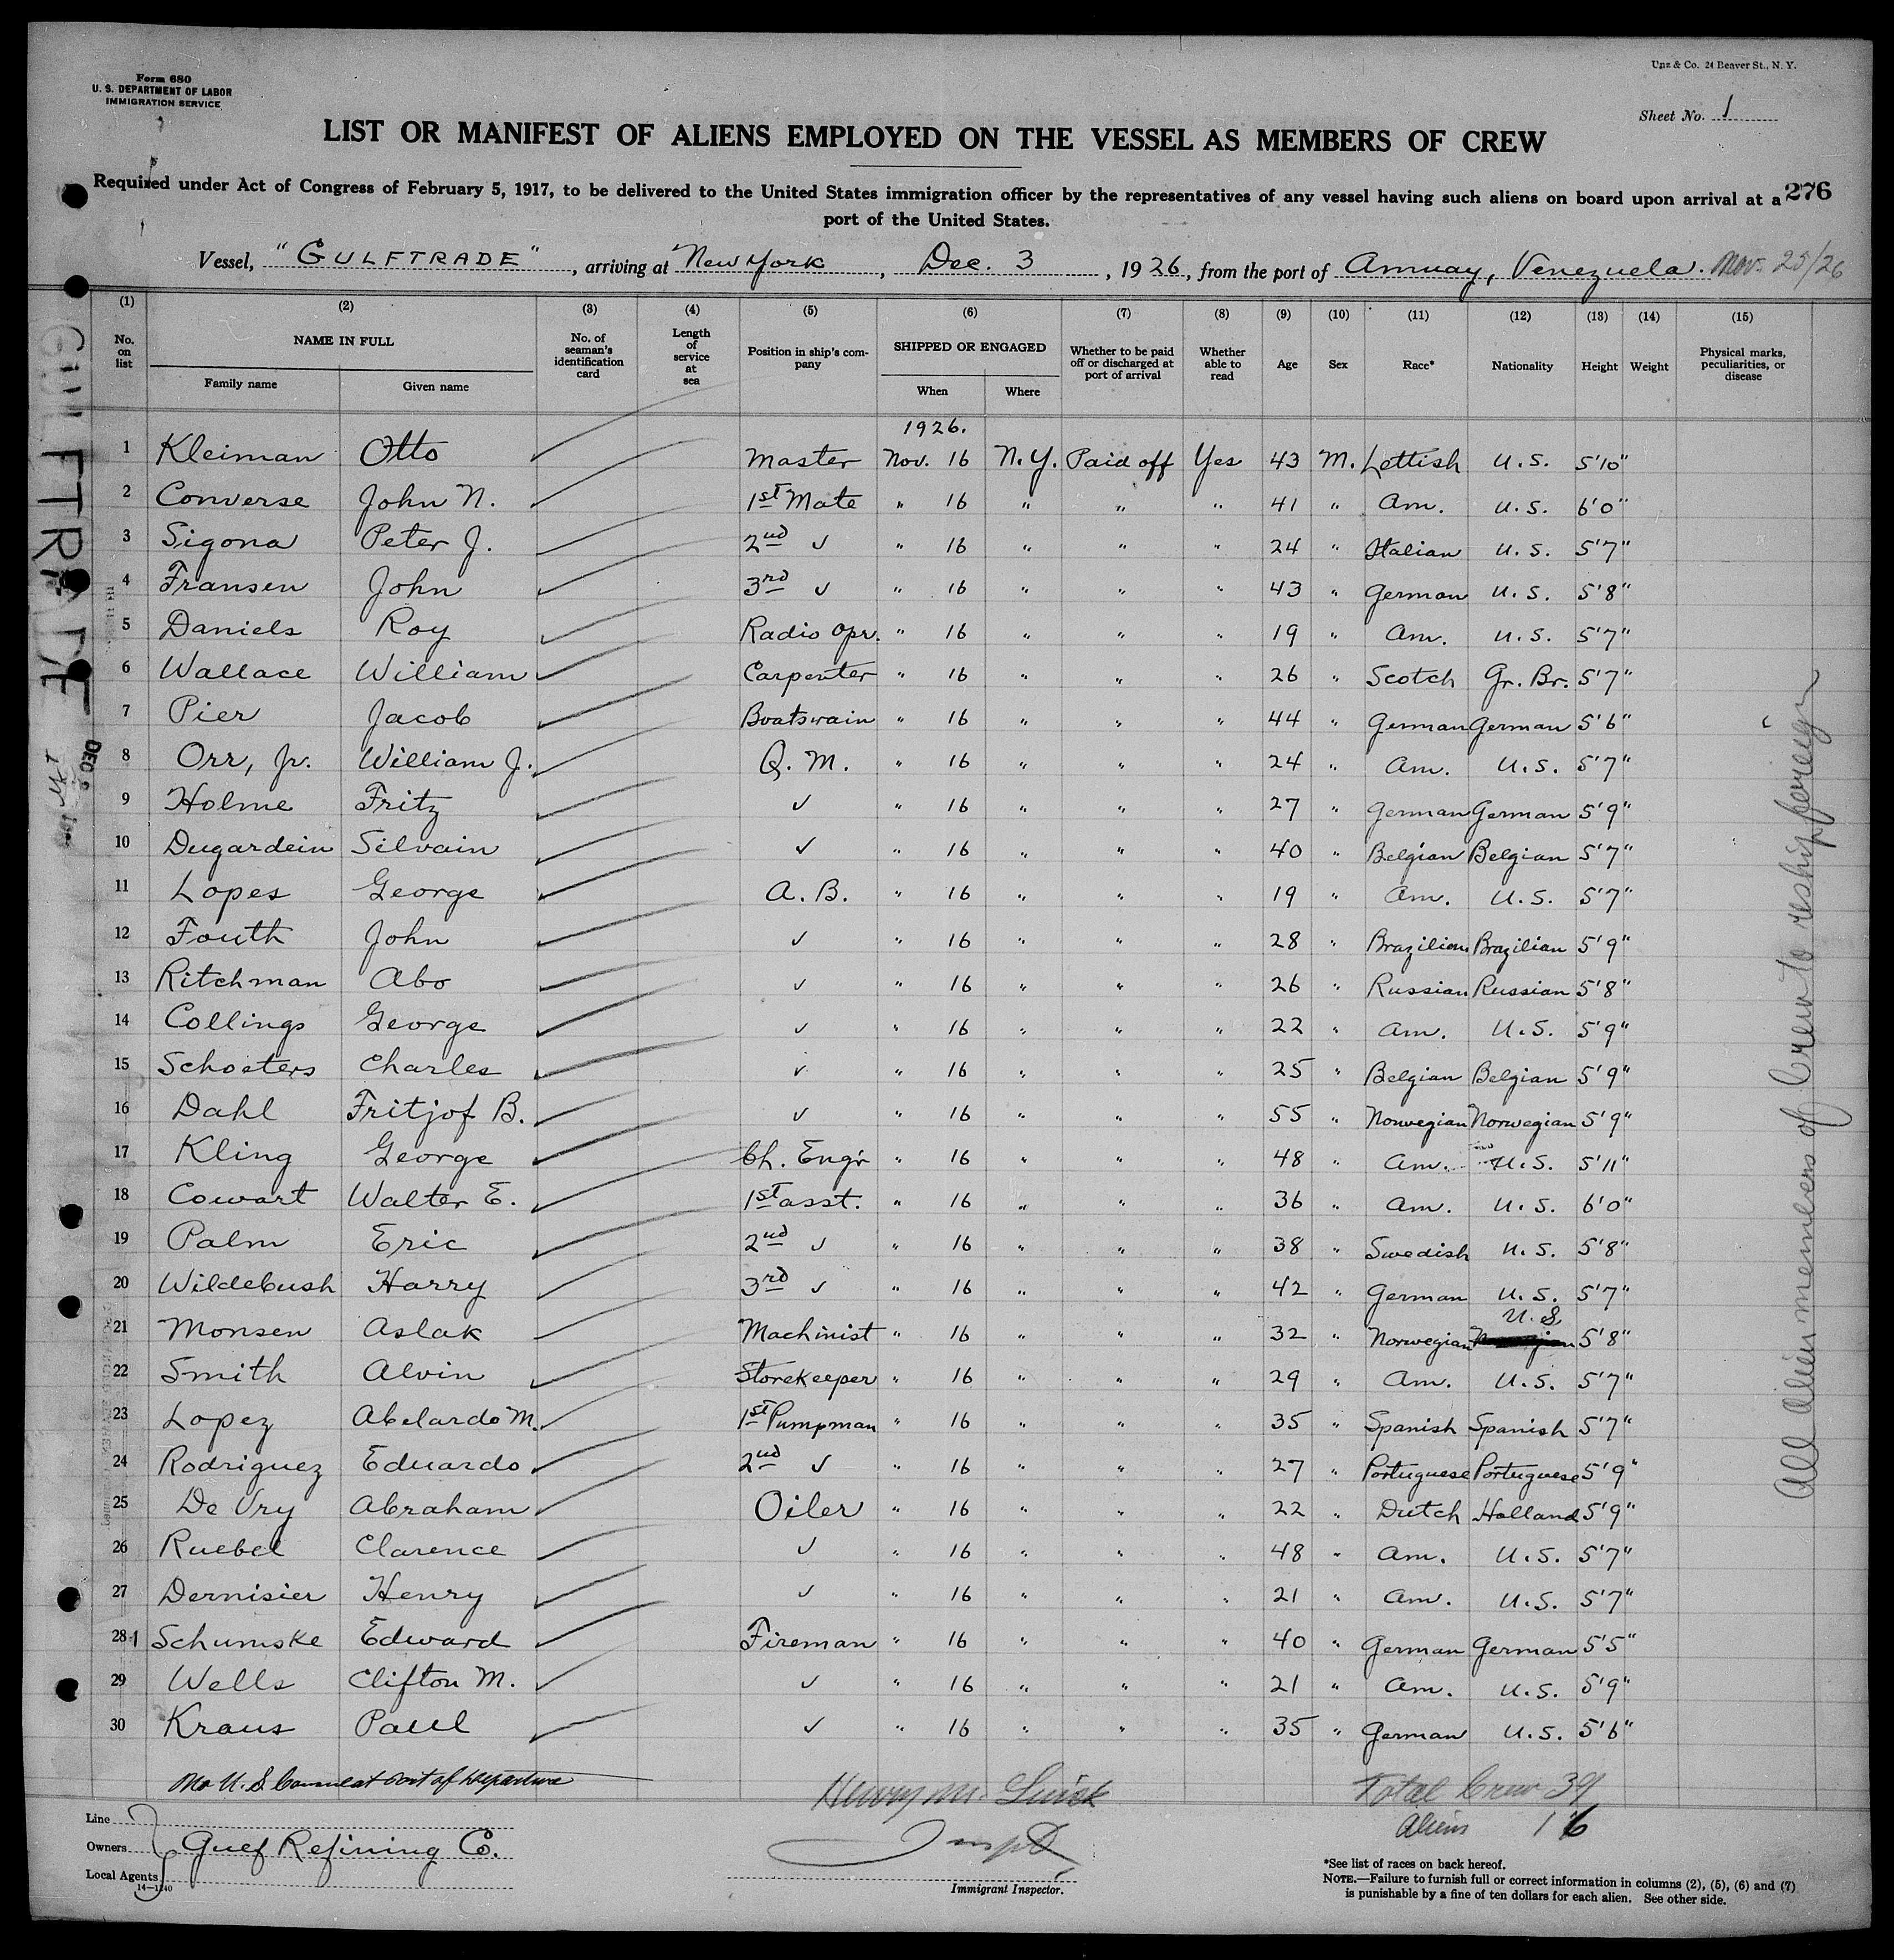 Form 680
U. S. DEPARTMENT OF LABOR
IMMIGRATION SERVICE
Unz & Co. 24 Beaver St., N. Y.
Sheet No. 1
LIST OR MANIFEST OF ALIENS EMPLOYED ON THE VESSEL AS MEMBERS OF CREW
Required under Act of Congress of February 5, 1917, to be delivered to the United States immigration officer by the representatives of any vessel having such aliens on board upon arrival at a
port of the United States.
276
Vessel, "GULFTRADE", arriving at New York, Dec. 3, 1926, from the port of Amuay, Venezuela. Nov. 25/26
(1) (2) (3) (4) (5) (6) (7) (8) (9) (10) (11) (12) (13) (14) (15)
No. on list
NAME IN FULL
Family name
Given name
No. of seaman's identification card
Length of service at sea
Position in ship's company
SHIPPED OR ENGAGED
When
Where
Whether to be paid off or discharged at port of arrival
Whether able to read
Age
Sex
Race*
Nationality
Height
Weight
Physical marks, peculiarities, or disease
1926.
1 Kleiman Otto Master Nov. 16 N.Y. Paid off Yes 43 M. Lettish U.S. 5'10"
2 Converse John N. 1st Mate " 16 " " " 41 " Am. U.S. 6'0"
3 Sigona Peter J. 2nd ✓ " 16 " " " 24 " Italian U.S. 5'7"
4 Fransen John 3rd ✓ " 16 " " " 43 " German U.S. 5'8"
5 Daniels Roy Radio Opr. " 16 " " " 19 " Am. U.S. 5'7"
6 Wallace William Carpenter " 16 " " " 26 " Scotch Gr. Br. 5'7"
7 Pier Jacob Boatswain " 16 " " " 44 " German German 5'6"
8 Orr, Jr. William J. Q.M. " 16 " " " 24 " Am. U.S. 5'7"
9 Holme Fritz ✓ " 16 " " " 27 " German German 5'9"
10 Dugardein Silvain ✓ " 16 " " " 40 " Belgian Belgian 5'7"
11 Lopes George A.B. " 16 " " " 19 " Am. U.S. 5'7"
12 Fouth John ✓ " 16 " " " 28 " Brazilian Brazilian 5'9"
13 Ritchman Abo ✓ " 16 " " " 26 " Russian Russian 5'8"
14 Collings George ✓ " 16 " " " 22 " Am. U.S. 5'9"
15 Schoeters Charles ✓ " 16 " " " 25 " Belgian Belgian 5'9"
16 Dahl Fritjof B. ✓ " 16 " " " 55 " Norwegian Norwegian 5'9"
17 Kling George Ch. Eng'r " 16 " " " 48 " Am. U.S. 5'11"
18 Cowart Walter E. 1st asst. " 16 " " " 36 " Am. U.S. 6'0"
19 Palm Eric 2nd ✓ " 16 " " " 38 " Swedish U.S. 5'8"
20 Wildebush Harry 3rd ✓ " 16 " " " 42 " German U.S. 5'7"
21 Monsen Aslak Machinist " 16 " " " 32 " Norwegian U.S. 5'8"
22 Smith Alvin Storekeeper " 16 " " " 29 " Am. U.S. 5'7"
23 Lopez Abelardo M. 1st Pumpman " 16 " " " 35 " Spanish Spanish 5'7"
24 Rodriguez Eduardo 2nd ✓ " 16 " " " 27 " Portuguese Portuguese 5'9"
25 De Vry Abraham Oiler " 16 " " " 22 " Dutch Holland 5'9"
26 Ruebel Clarence ✓ " 16 " " " 48 " Am. U.S. 5'7"
27 Dernisier Henry ✓ " 16 " " " 21 " Am. U.S. 5'7"
28 Schumske Edward Fireman " 16 " " " 40 " German German 5'5"
29 Wells Clifton M. ✓ " 16 " " " 21 " Am. U.S. 5'9"
30 Kraus Paul ✓ " 16 " " " 35 " German U.S. 5'6"
All alien members of Crew to reship foreign
GULFTRADE
DEC
No U.S. Consul at Port of Departure
Total Crew 39
Aliens 16
Line
Owners Gulf Refining Co.
Local Agents
14—1240
Henry M.
Insp
Immigrant Inspector.
*See list of races on back hereof.
NOTE.—Failure to furnish full or correct information in columns (2), (5), (6) and (7)
is punishable by a fine of ten dollars for each alien. See other side.